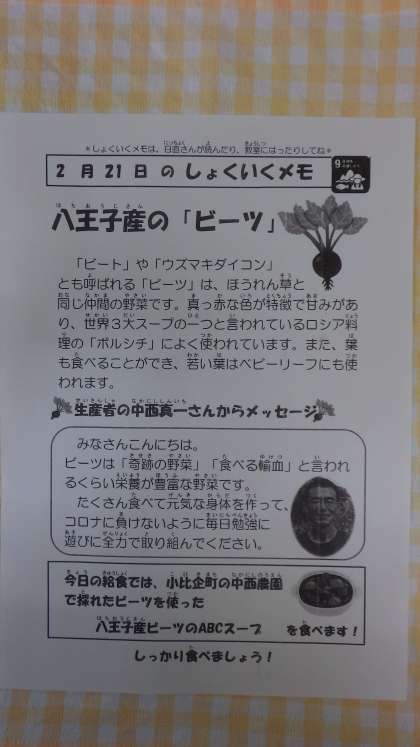 ＊しょくいくメモは、日直さんが読んだり、教室にはったりしてね＊
2 月 21 日 の しょくいくメモ
八王子産の「ビーツ」
「ビート」や「ウズマキダイコン」
とも呼ばれる「ビーツ」は、ほうれん草と
同じ仲間の野菜です。真っ赤な色が特徴で甘みがあ
り、世界３大スープの一つと言われているロシア料
理の「ボルシチ」によく使われています。また、葉
も食べることができ、若い葉はベビーリーフにも使
われます。
生産者の中西真一さんからメッセージ
みなさんこんにちは。
ビーツは「奇跡の野菜」「食べる輸血」と言われ
るくらい栄養が豊富な野菜です。
たくさん食べて元気な身体を作って、
コロナに負けないように毎日勉強に
遊びに全力で取り組んでください。
今日の給食では、小比企町の中西農園
で採れたビーツを使った
八王子産ビーツのABCスープ を食べます！
しっかり食べましょう！